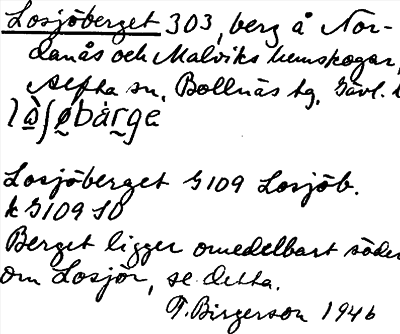 Losjöberget 303, berg å Nor-
danås och Malviks hemskogar,
Alfta sn, Bollnäs tg, Gävl. l
lὰʃøbàrge
Losjöberget G109 Losjöb.
k G109 SO
Berget ligger omedelbart söder
om Losjön, se detta.
T. Birgerson 1946